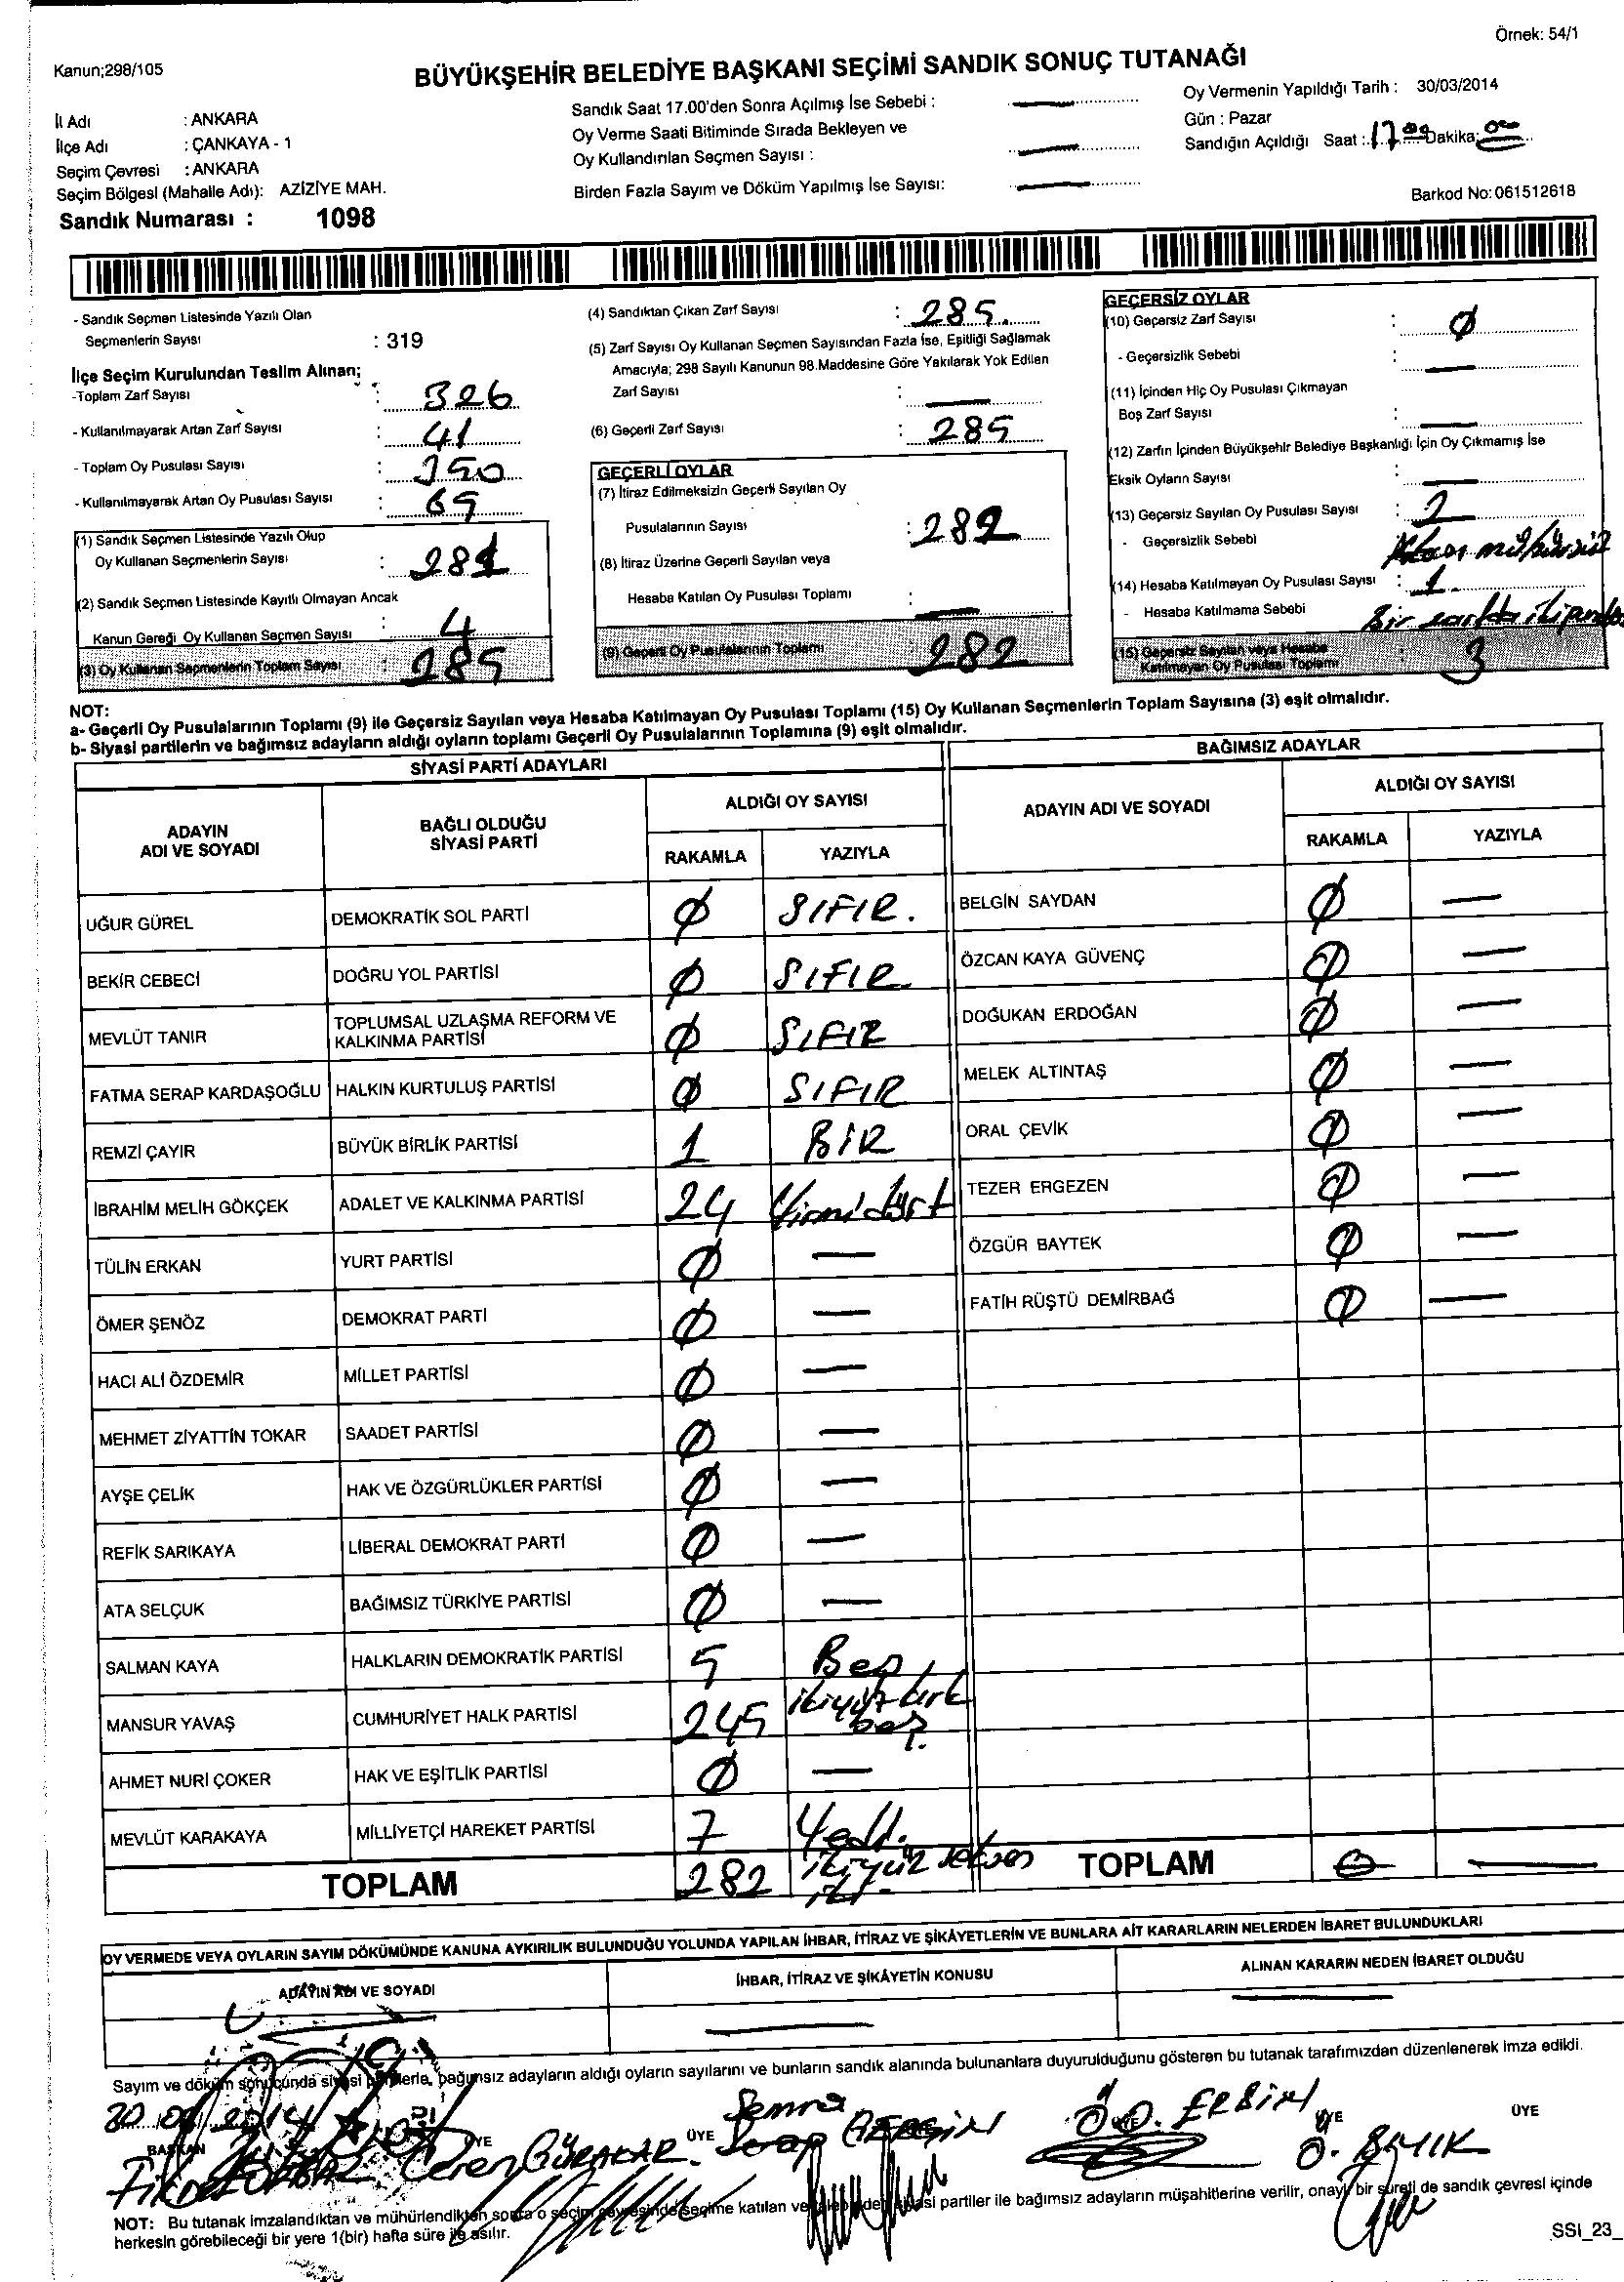 Örnek: 54/1
Kanun;298/105
BÜYÜKŞEHİR BELEDİYE BAŞKANI SEÇİMİ SANDIK SONUÇ TUTANAĞI
İl Adı : ANKARA
İlçe Adı : ÇANKAYA - 1
Seçim Çevresi : ANKARA
Seçim Bölgesi (Mahalle Adı): AZİZİYE MAH.
Sandık Numarası : 1098
Sandık Saat 17.00'den Sonra Açılmış İse Sebebi : —
Oy Verme Saati Bitiminde Sırada Bekleyen ve
Oy Kullandırılan Seçmen Sayısı : —
Birden Fazla Sayım ve Döküm Yapılmış İse Sayısı: —
Oy Vermenin Yapıldığı Tarih : 30/03/2014
Gün : Pazar
Sandığın Açıldığı Saat : 17.00 Dakika: 00
Barkod No: 061512618
- Sandık Seçmen Listesinde Yazılı Olan
Seçmenlerin Sayısı : 319
İlçe Seçim Kurulundan Teslim Alınan;
-Toplam Zarf Sayısı : 326
- Kullanılmayarak Artan Zarf Sayısı : 41
- Toplam Oy Pusulası Sayısı : 350
- Kullanılmayarak Artan Oy Pusulası Sayısı : 65
(1) Sandık Seçmen Listesinde Yazılı Olup
Oy Kullanan Seçmenlerin Sayısı : 281
(2) Sandık Seçmen Listesinde Kayıtlı Olmayan Ancak
Kanun Gereği Oy Kullanan Seçmen Sayısı : 4
(3) Oy Kullanan Seçmenlerin Toplam Sayısı : 285
(4) Sandıktan Çıkan Zarf Sayısı : 285
(5) Zarf Sayısı Oy Kullanan Seçmen Sayısından Fazla İse, Eşitliği Sağlamak
Amacıyla; 298 Sayılı Kanunun 98.Maddesine Göre Yakılarak Yok Edilen
Zarf Sayısı : —
(6) Geçerli Zarf Sayısı : 285
GEÇERLİ OYLAR
(7) İtiraz Edilmeksizin Geçerli Sayılan Oy
Pusulalarının Sayısı : 282
(8) İtiraz Üzerine Geçerli Sayılan veya
Hesaba Katılan Oy Pusulası Toplamı : —
(9) Geçerli Oy Pusulalarının Toplamı : 282
GEÇERSİZ OYLAR
(10) Geçersiz Zarf Sayısı : 0
- Geçersizlik Sebebi : —
(11) İçinden Hiç Oy Pusulası Çıkmayan
Boş Zarf Sayısı : —
(12) Zarfın İçinden Büyükşehir Belediye Başkanlığı İçin Oy Çıkmamış İse
Eksik Oyların Sayısı : —
(13) Geçersiz Sayılan Oy Pusulası Sayısı : 2
- Geçersizlik Sebebi mühürsüz
(14) Hesaba Katılmayan Oy Pusulası Sayısı : 1
- Hesaba Katılmama Sebebi Bir zarfta iki pusula
(15) Geçersiz Sayılan veya Hesaba
Katılmayan Oy Pusulası Toplamı : 3
NOT:
a- Geçerli Oy Pusulalarının Toplamı (9) ile Geçersiz Sayılan veya Hesaba Katılmayan Oy Pusulası Toplamı (15) Oy Kullanan Seçmenlerin Toplam Sayısına (3) eşit olmalıdır.
b- Siyasi partilerin ve bağımsız adayların aldığı oyların toplamı Geçerli Oy Pusulalarının Toplamına (9) eşit olmalıdır.
SİYASİ PARTİ ADAYLARI
ADAYIN ADI VE SOYADI BAĞLI OLDUĞU SİYASİ PARTİ ALDIĞI OY SAYISI
RAKAMLA YAZIYLA
UĞUR GÜREL DEMOKRATİK SOL PARTİ 0 SIFIR.
BEKİR CEBECİ DOĞRU YOL PARTİSİ 0 SIFIR
MEVLÜT TANIR TOPLUMSAL UZLAŞMA REFORM VE KALKINMA PARTİSİ 0 SIFIR
FATMA SERAP KARDAŞOĞLU HALKIN KURTULUŞ PARTİSİ 0 SIFIR
REMZİ ÇAYIR BÜYÜK BİRLİK PARTİSİ 1 BİR
İBRAHİM MELİH GÖKÇEK ADALET VE KALKINMA PARTİSİ 24 Yirmidört
TÜLİN ERKAN YURT PARTİSİ 0 —
ÖMER ŞENÖZ DEMOKRAT PARTİ 0 —
HACI ALİ ÖZDEMİR MİLLET PARTİSİ 0 —
MEHMET ZİYATTİN TOKAR SAADET PARTİSİ 0 —
AYŞE ÇELİK HAK VE ÖZGÜRLÜKLER PARTİSİ 0 —
REFİK SARIKAYA LİBERAL DEMOKRAT PARTİ 0 —
ATA SELÇUK BAĞIMSIZ TÜRKİYE PARTİSİ 0 —
SALMAN KAYA HALKLARIN DEMOKRATİK PARTİSİ 5 Beş
MANSUR YAVAŞ CUMHURİYET HALK PARTİSİ 245 ikiyüzkırk beş.
AHMET NURİ ÇOKER HAK VE EŞİTLİK PARTİSİ 0 —
MEVLÜT KARAKAYA MİLLİYETÇİ HAREKET PARTİSİ 7 Yedi.
TOPLAM 282 ikiyüz seksen iki.
BAĞIMSIZ ADAYLAR
ADAYIN ADI VE SOYADI ALDIĞI OY SAYISI
RAKAMLA YAZIYLA
BELGİN SAYDAN 0 —
ÖZCAN KAYA GÜVENÇ 0 —
DOĞUKAN ERDOĞAN 0 —
MELEK ALTINTAŞ 0 —
ORAL ÇEVİK 0 —
TEZER ERGEZEN 0 —
ÖZGÜR BAYTEK 0 —
FATİH RÜŞTÜ DEMİRBAĞ 0 —
TOPLAM 0 —
OY VERMEDE VEYA OYLARIN SAYIM DÖKÜMÜNDE KANUNA AYKIRILIK BULUNDUĞU YOLUNDA YAPILAN İHBAR, İTİRAZ VE ŞİKÂYETLERİN VE BUNLARA AİT KARARLARIN NELERDEN İBARET BULUNDUKLARI
ADAYIN ADI VE SOYADI İHBAR, İTİRAZ VE ŞİKÂYETİN KONUSU ALINAN KARARIN NEDEN İBARET OLDUĞU
Sayım ve döküm sonucunda siyasi partilerle, bağımsız adayların aldığı oyların sayılarını ve bunların sandık alanında bulunanlara duyurulduğunu gösteren bu tutanak tarafımızdan düzenlenerek imza edildi.
BAŞKAN ÜYE ÜYE ÜYE ÜYE
Ceren Semra Serap Ö.D. ERBİM
NOT: Bu tutanak imzalandıktan ve mühürlendikten sonra o seçim çevresinde seçime katılan ve siyasi partiler ile bağımsız adayların müşahitlerine verilir, onaylı bir sureti de sandık çevresi içinde
herkesin görebileceği bir yere 1(bir) hafta süre ile asılır.
SSI_23_